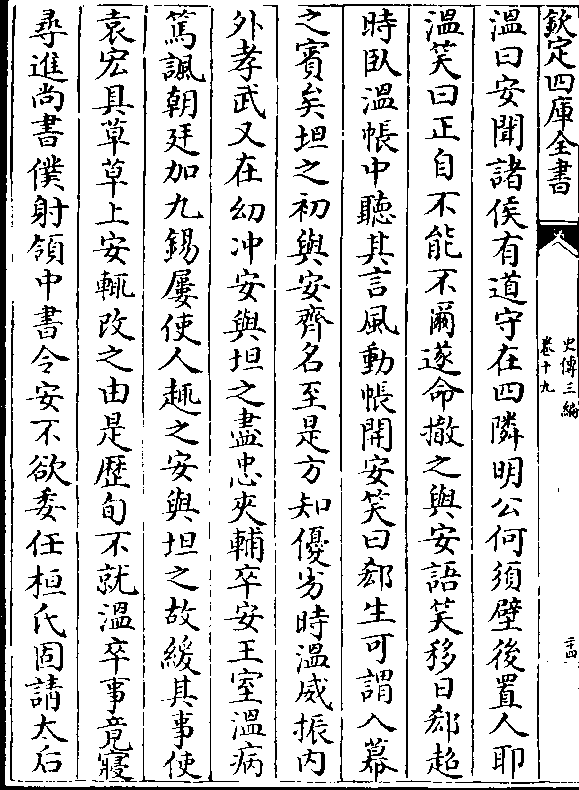 欽定四庫全書
史傳三編
卷十九
二十四
溫曰安聞諸侯有道守在四隣明公何須壁後置人耶
溫笑曰正自不能不爾遂命撤之與安語笑移日郄超
時臥溫帳中聽其言風動帳開安笑曰郄生可謂入幕
之賓矣坦之初與安齊名至是方知優劣時溫威振內
外孝武又在幼冲安與坦之盡忠夾輔卒安王室溫病
篤諷朝廷加九錫屢使人趣之安與坦之故緩其事使
袁宏具草草上安輒改之由是歷旬不就溫卒事竟寢
尋進尚書僕射領中書令安不欲委任桓氏固請太后